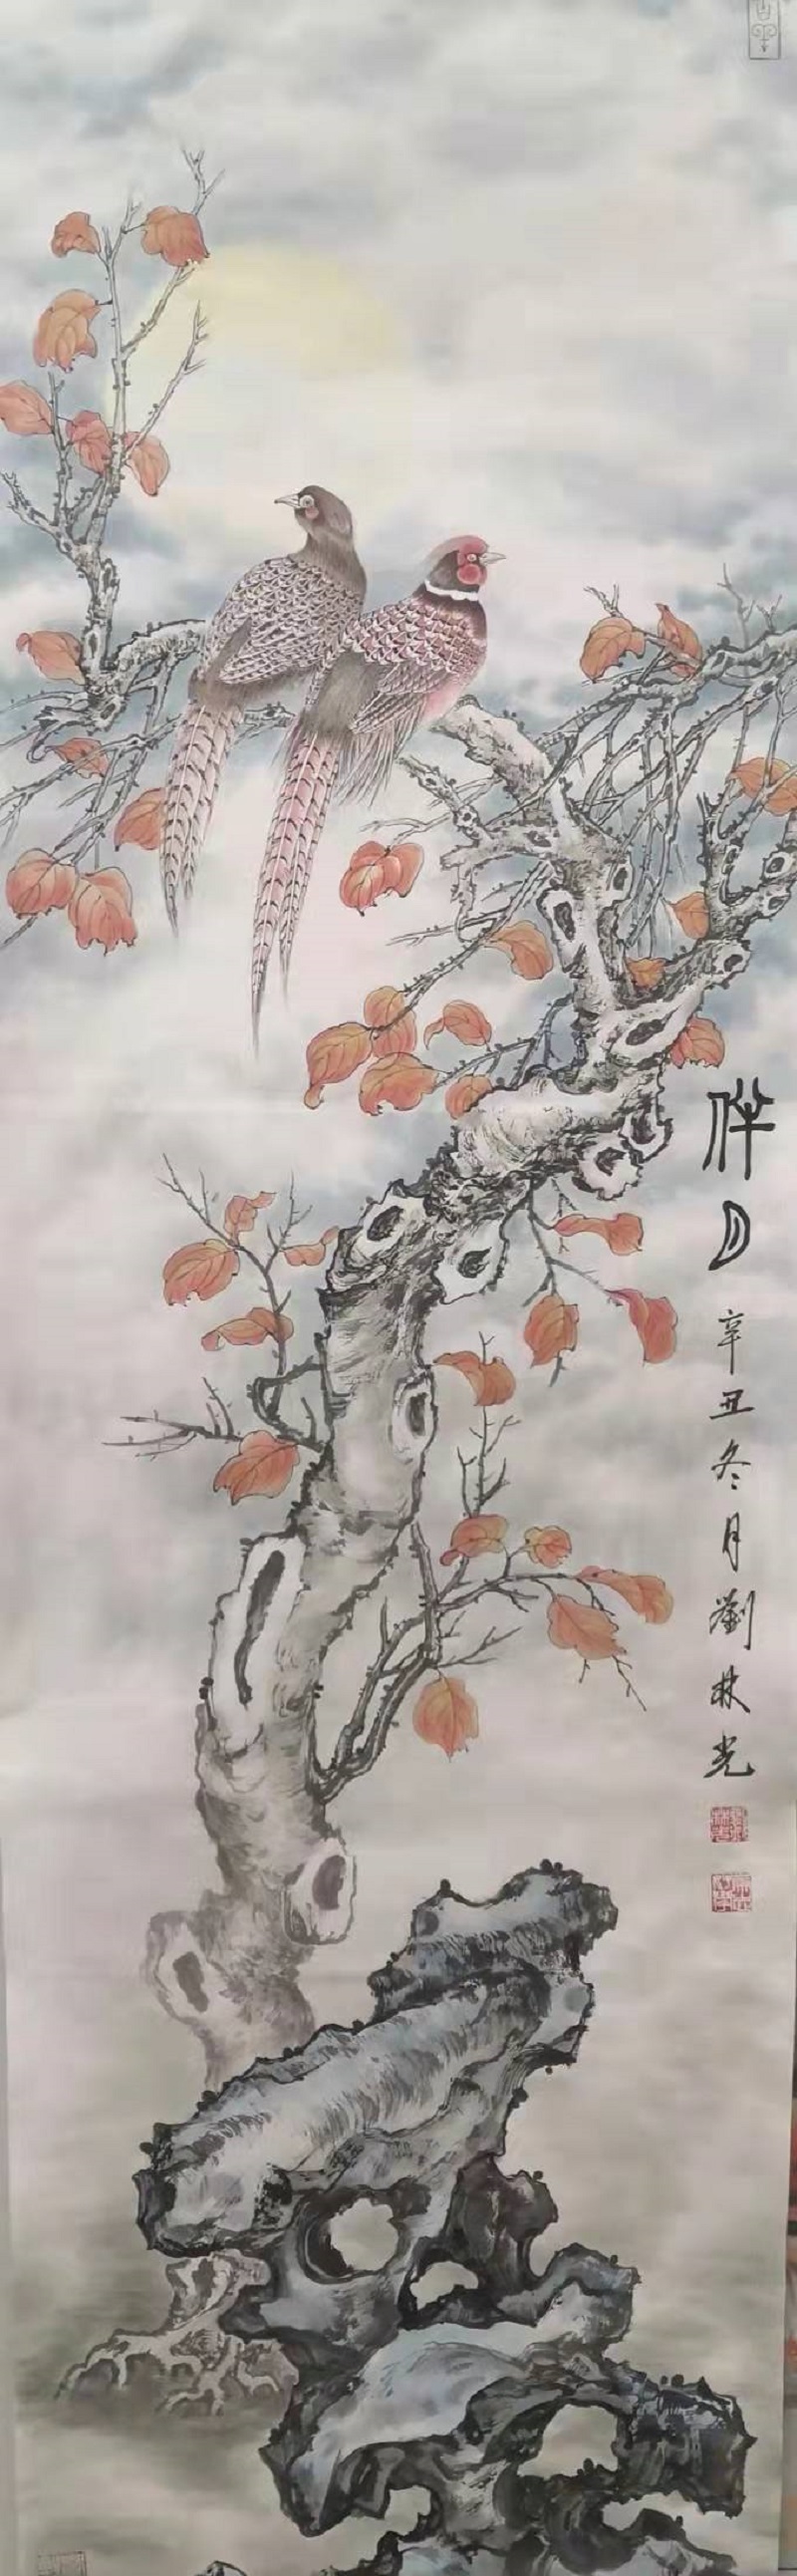 伴月
辛丑冬月劉林光